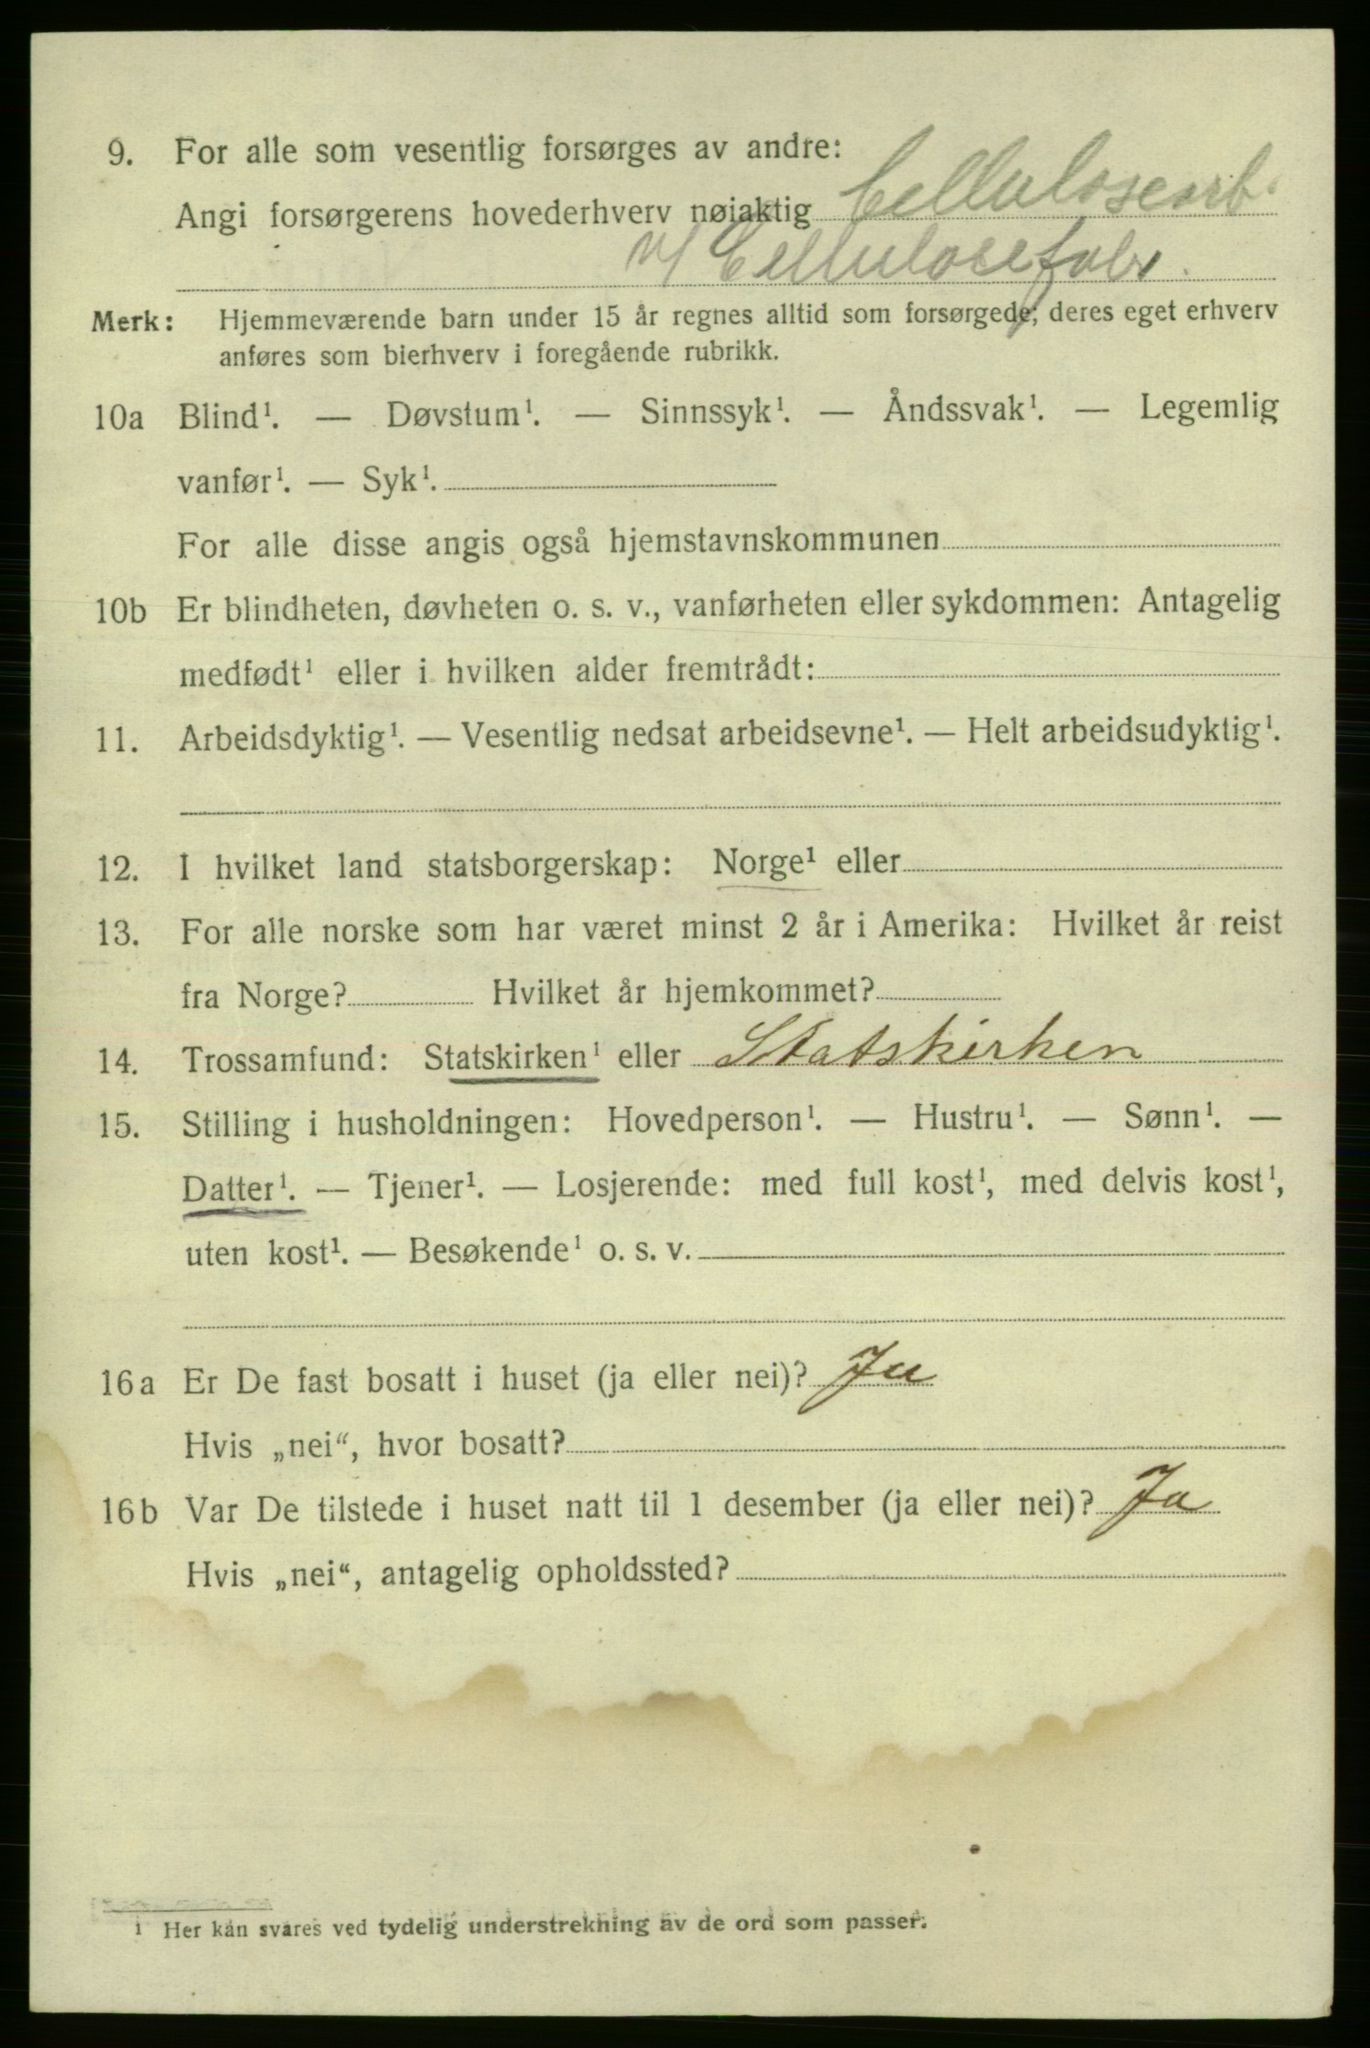 9. For alle som vesentlig forsørges av andre:
Angi forsørgerens hovederhverv nøiaktig Cellulosearb.
v/ Cellulosefabr.
Merk: Hjemmeværende barn under 15 år regnes alltid som forsørgede; deres eget erhverv
anføres som bierhverv i foregående rubrikk.
10a Blind¹. — Døvstum¹. — Sinnssyk¹. — Åndssvak¹. — Legemlig
vanfør¹. — Syk¹.
For alle disse angis også hjemstavnskommunen
10b Er blindheten, døvheten o. s. v., vanførheten eller sykdommen: Antagelig
medfødt¹ eller i hvilken alder fremtrådt:
11. Arbeidsdyktig¹. — Vesentlig nedsat arbeidsevne¹. — Helt arbeidsudyktig¹.
12. I hvilket land statsborgerskap: Norge¹ eller
13. For alle norske som har været minst 2 år i Amerika: Hvilket år reist
fra Norge? Hvilket år hjemkommet?
14. Trossamfund: Statskirken¹ eller Statskirken
15. Stilling i husholdningen: Hovedperson¹. — Hustru¹. — Sønn¹. —
Datter¹. — Tjener¹. — Losjerende: med full kost¹, med delvis kost¹,
uten kost¹. — Besøkende¹ o. s. v.
16a Er De fast bosatt i huset (ja eller nei)? Ja
Hvis „nei“, hvor bosatt?
16b Var De tilstede i huset natt til 1 desember (ja eller nei)? Ja
Hvis „nei“, antagelig opholdssted?
1 Her kan svares ved tydelig understrekning av de ord som passer.